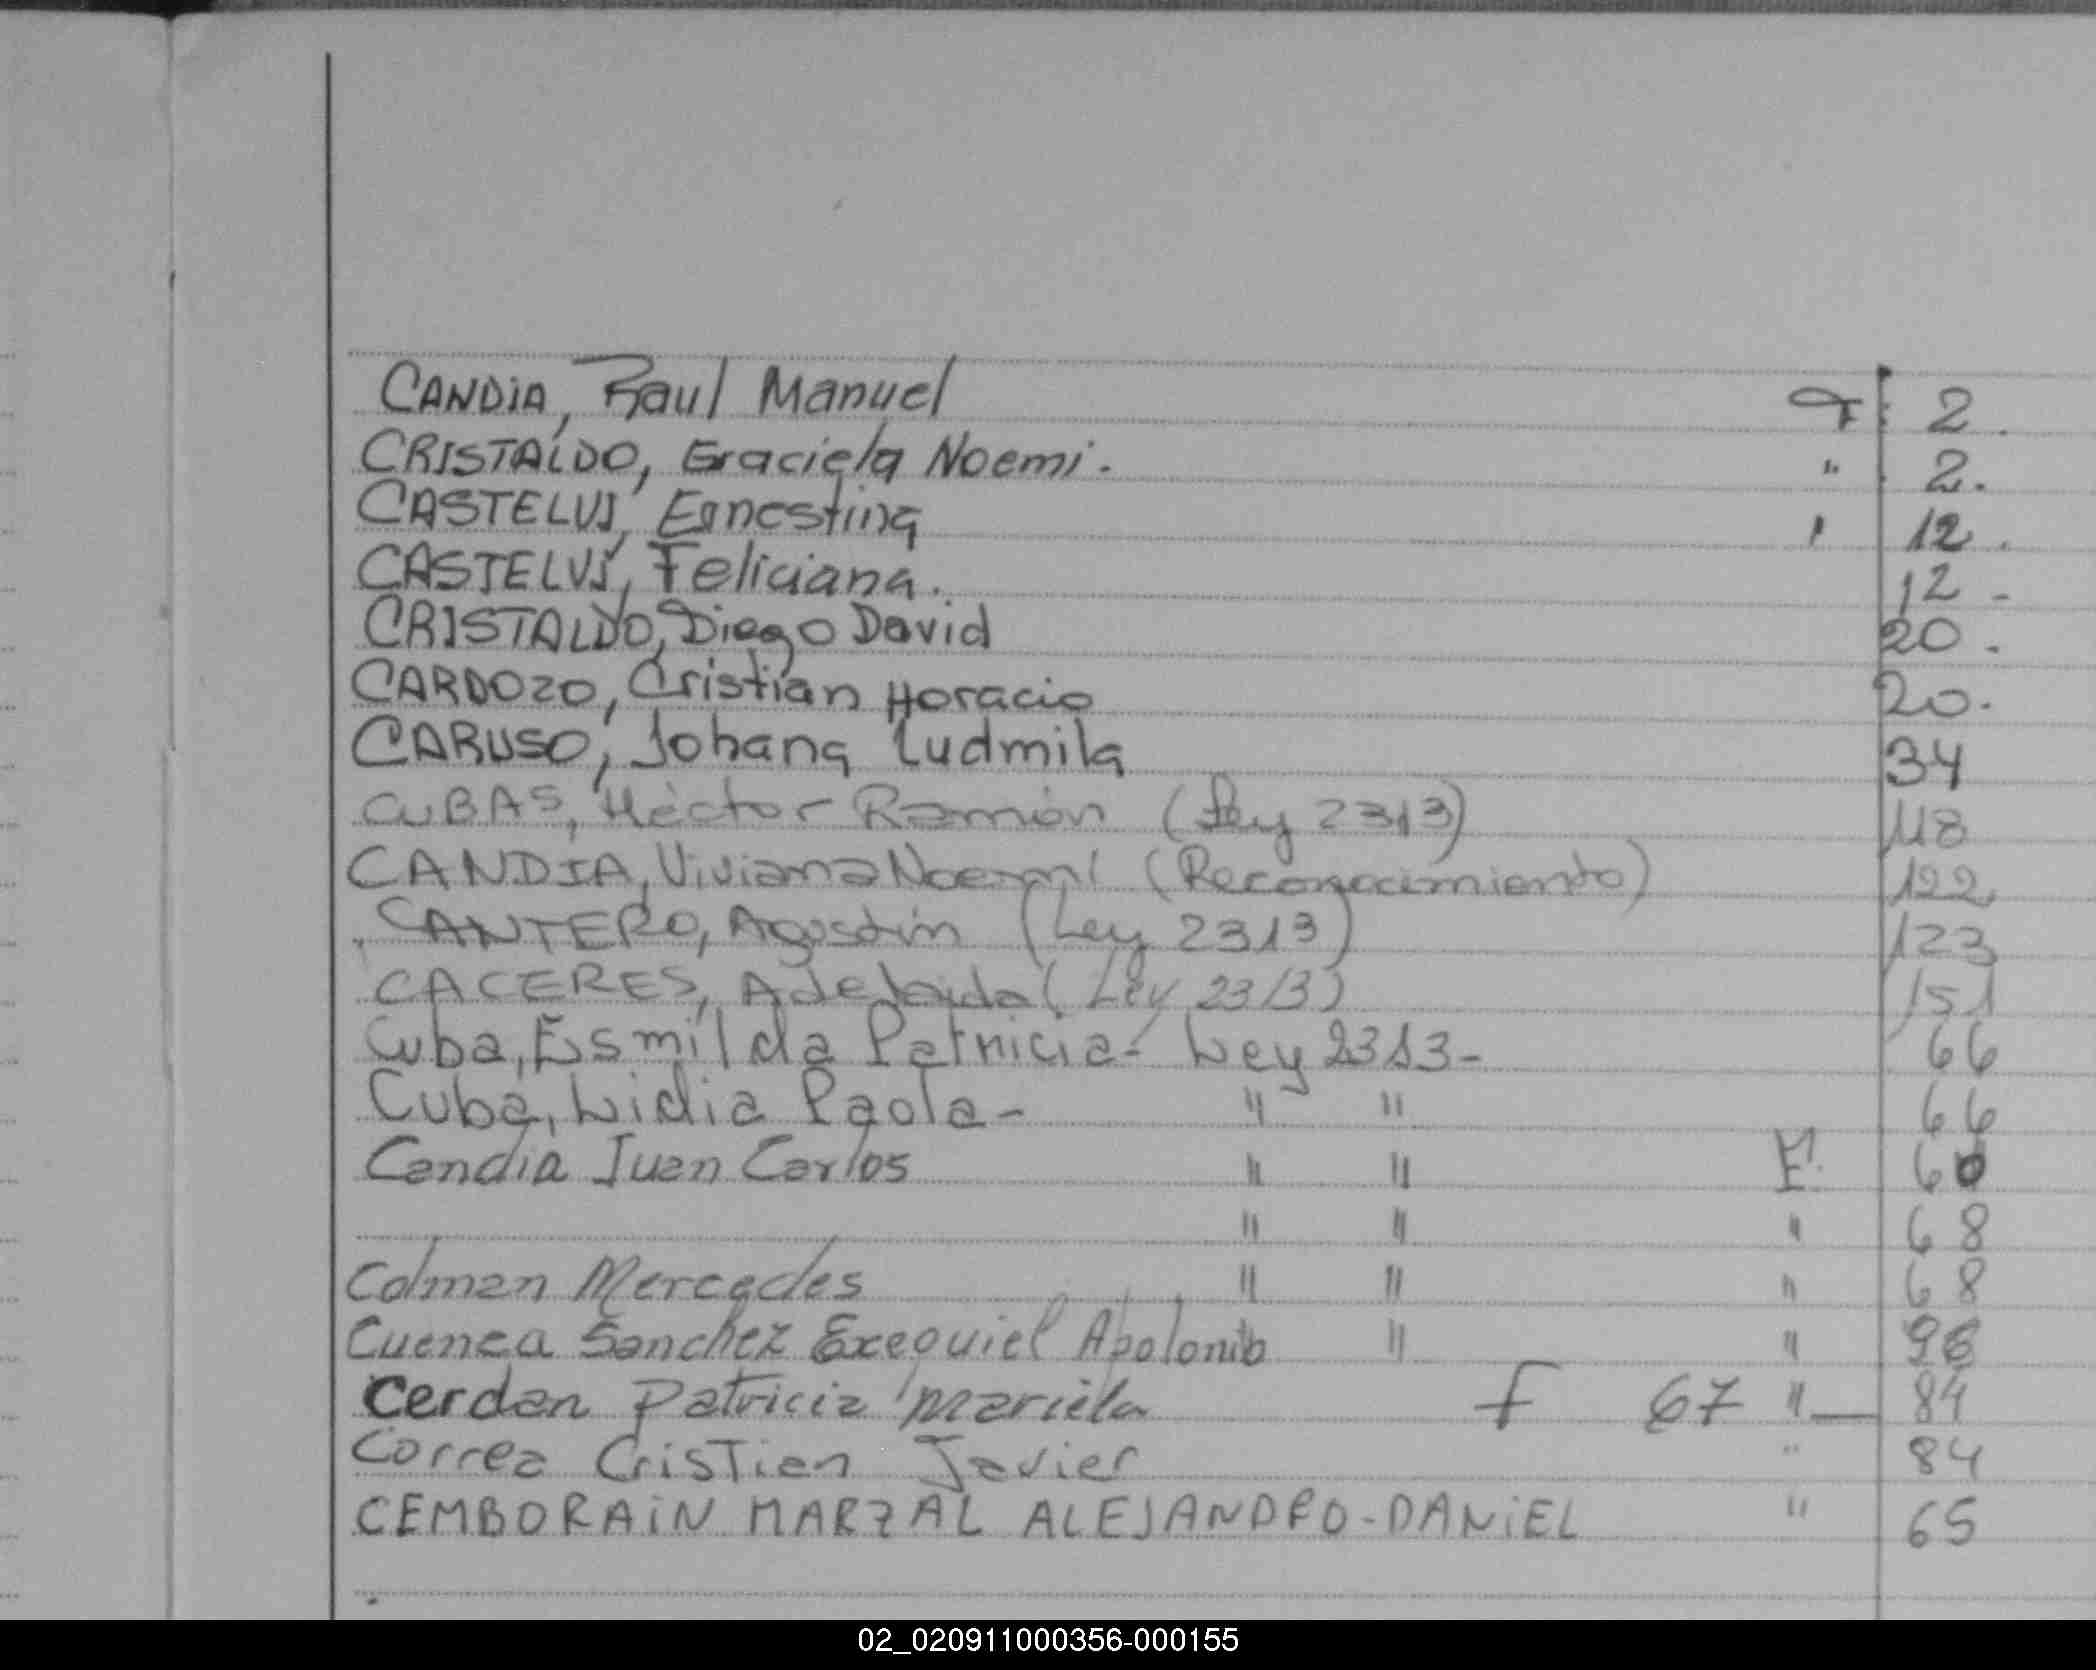 CANDIA, Raul Manuel F 2.
CRISTALDO, Graciela Noemi. " 2.
CASTELVI, Ernestina ' 12.
CASTELVI, Feliciana. 12 -
CRISTALDO, Diego David 20.
CARDOZO, Cristian Horacio 20.
CARUSO, Johana Ludmila 34
CUBAS, Héctor Ramón (Ley 2313) 118
CANDIA, Viviana Noemí (Reconocimiento) 122
CANTERO, Agustín (Ley 2313) 123
CACERES, Adelaida (Ley 2313) 151
Cuba, Esmilda Patricia - Ley 2313- 66
Cuba, Lidia Paola - " " 66
Candia Juan Carlos " " F. 60
" " " 68
Colman Mercedes " " " 68
Cuenca Sanchez Exequiel Apolonio " " 96
Cerdan Patricia Mariela f 67 " — 84
Correa Cristian Javier " 84
CEMBORAIN MARZAL ALEJANDRO-DANIEL " 65
02_020911000356-000155